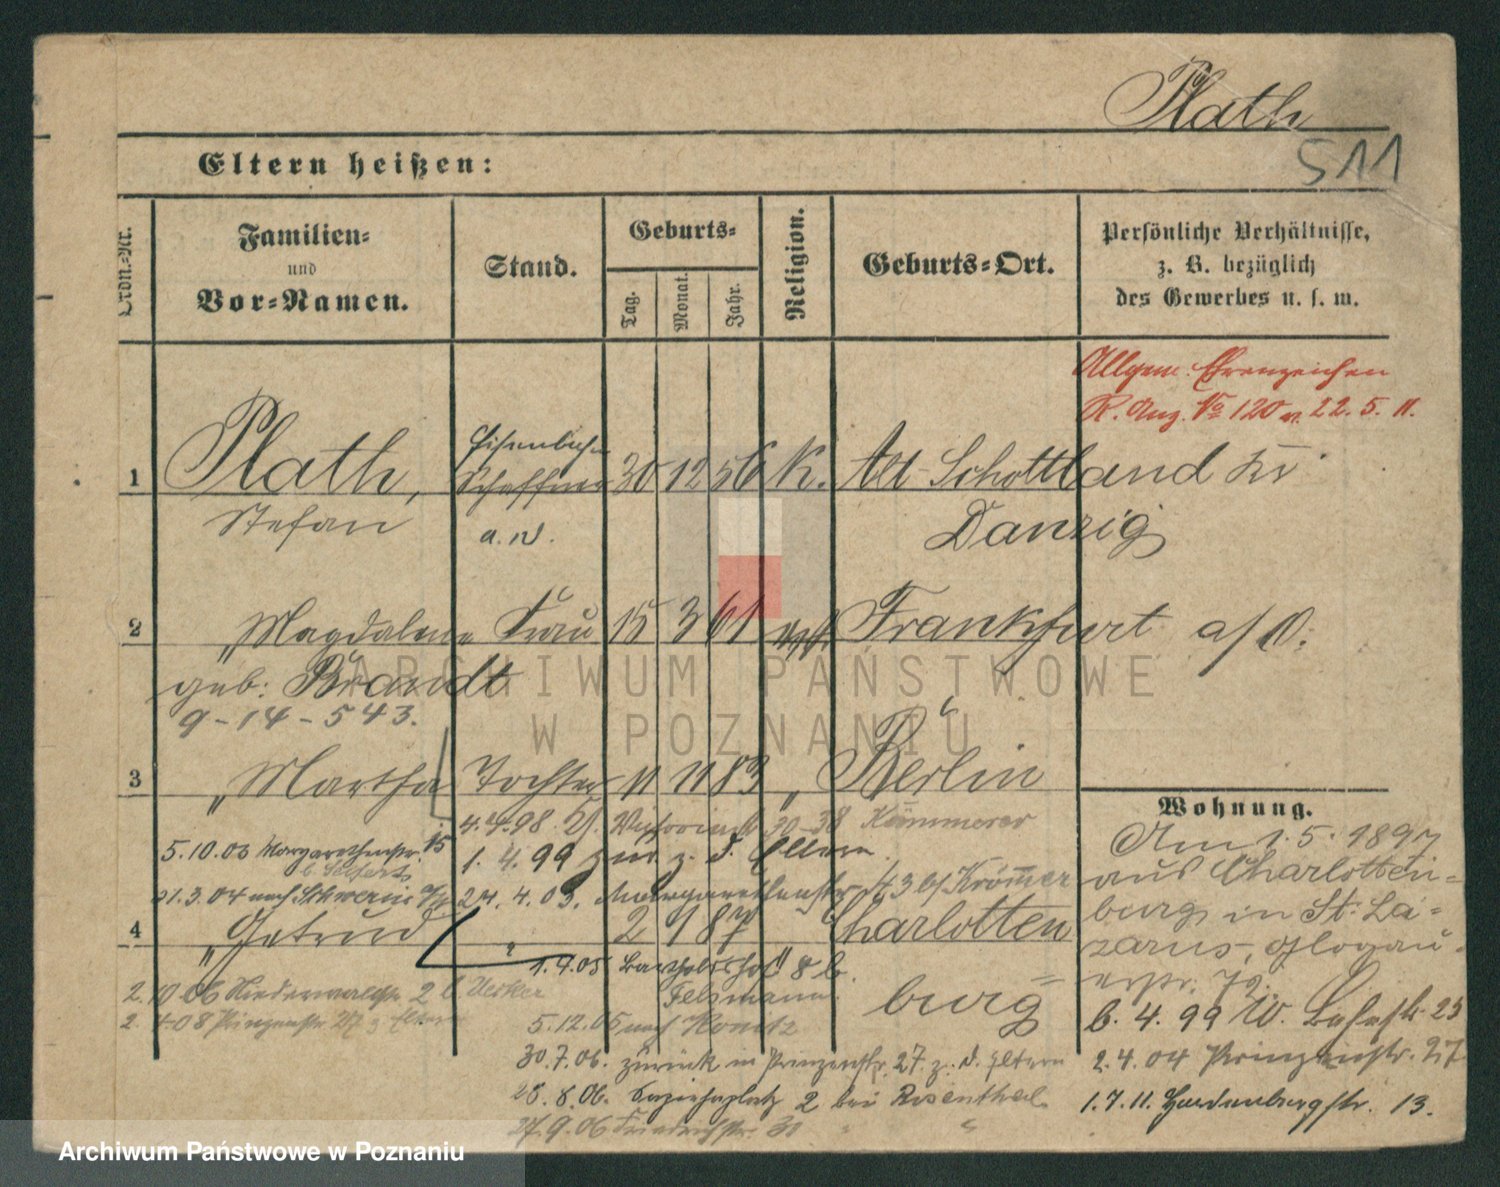 Plath
511
Eltern heißen:
Ordn.-Nr.
Familien-
und
Vor-Namen.
Stand.
Geburts-
Tag.
Monat.
Jahr.
Religion.
Geburts-Ort.
Persönliche Verhältnisse,
z. B. bezüglich
des Gewerbes u. s. w.
Allgem. Ehrenzeichen
R. Anz. No 120 v. 22. 5. 11.
Eisenbahn
1 Plath, Schaffner 30 12 56 K. Alt-Schottland Kr
Stefan a. D. Danzig
2 „ Magdalene Frau 15 3 61 Frankfurt a/O.
geb: Brandt
9-14-543.
3 „ Martha Tochter 11 11 83 „ Berlin
Wohnung.
4.4.98. 30-38 Kämmerer
5.10.03 Margarethenstr. 15
1. 4. 99 zur. z. d. Eltern.
b Seifert
31.3.04 nach Schwerin a/W
24. 4. 03. Margarethenstr. 43 b/ Krömer
4 „ Getrud „ 2 1 87 „ Charlotten
burg
1.4.05 Bartholdshof 8 b.
Felsmann.
2.10.06 Niederwallstr. 2 b. Uecker
2. 4.08 Prinzenstr 27 z Eltern
5.12.05 nach Konitz
30.7.06. zurück in Prinzenstr. 27. z. d. Eltern
28.8.06. Sapiehaplatz 2 bei Rosenthal
27.9.06 Friedrichstr. 30 " "
Am 1.5.1897
aus Charlotten-
burg in St. La-
zarus, Glogau-
erstr. 72.
6. 4. 99 W. 25
2.4.04 Prinzenstr. 27
1.7.11. Hardenbergstr. 13.
ARCHIWUM PAŃSTWOWE
W POZNANIU
Archiwum Państwowe w Poznaniu